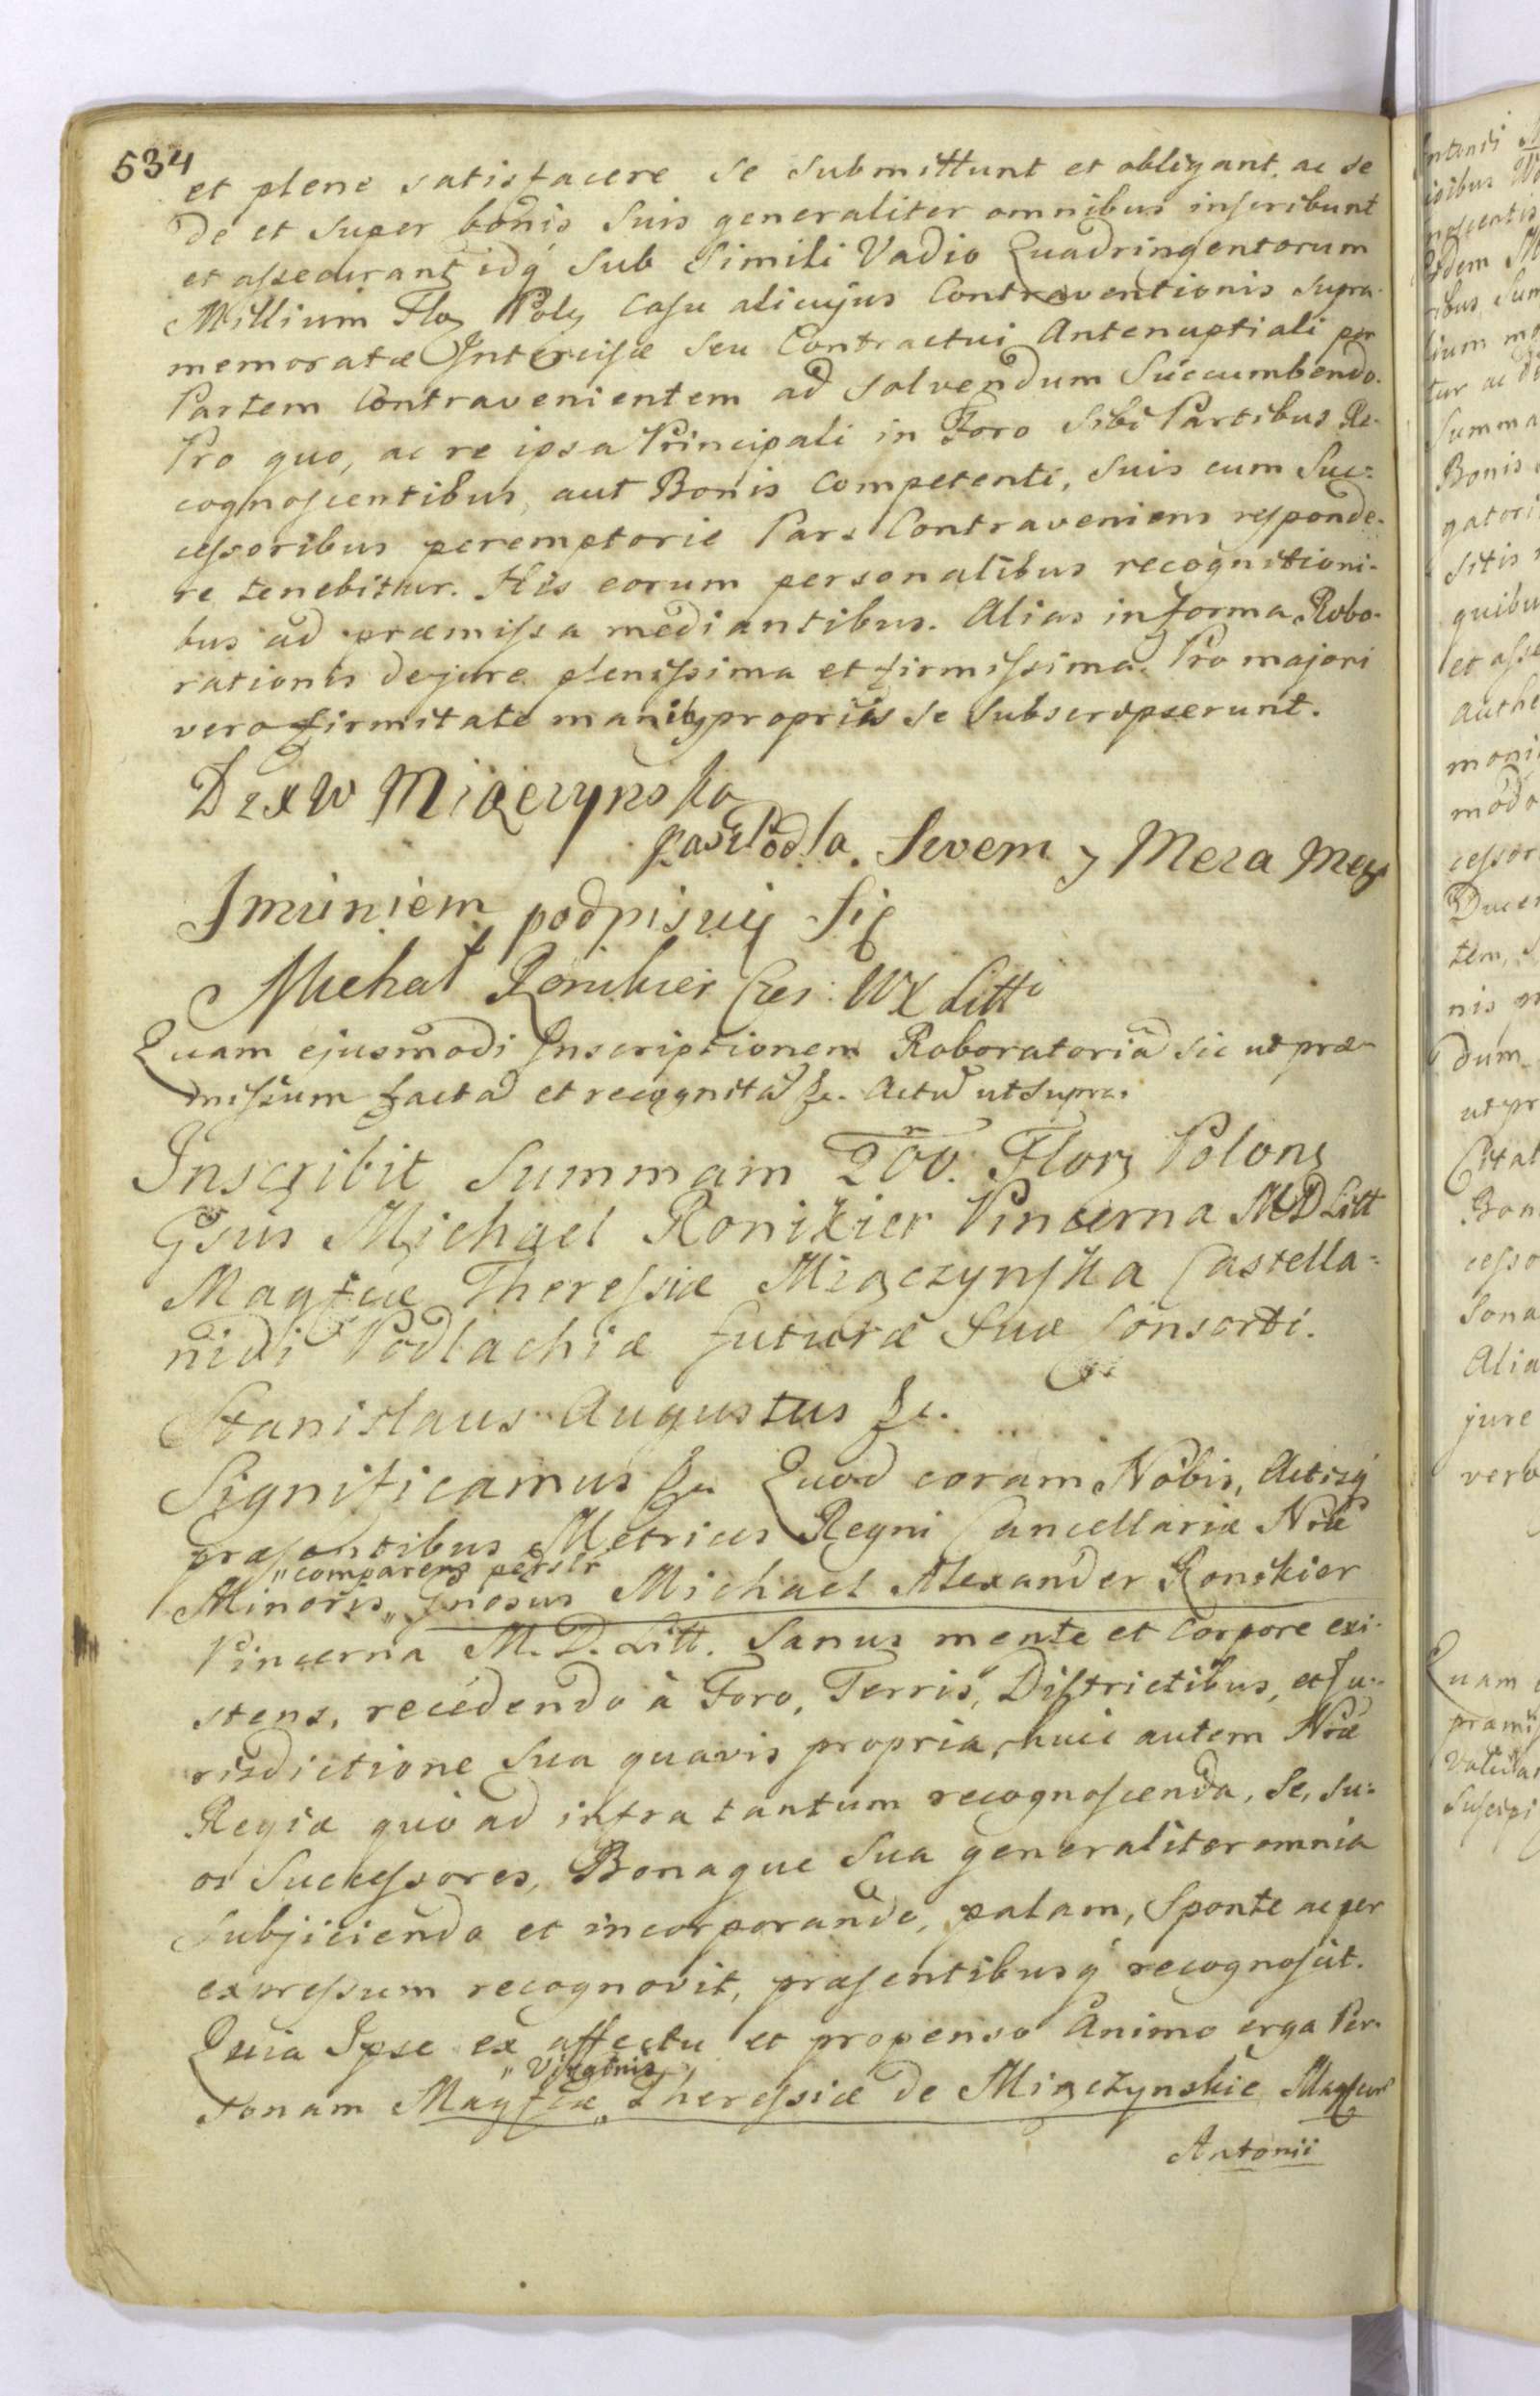 534
et plene satisfacere se submittunt et obligant, ac se
de et super bonis suis generaliter omnibus inscribunt
et assecurant, idq́ sub simili Vadio Quadringentorum
Millium Flor Pol, casu alicujus Contraventionis supra-
memoratæ Intercisæ seu Contractui Antenuptiali per
Partem Contravenientem ad solvendum succumbendo.
Pro quo, ac re ipsa Principali in Foro sibi Partibus Re-
cognoscentibus, aut Bonis Competenti, suis cum suc-
cessoribus peremptorie Pars Contraveniens responde-
re tenebitur. His eorum personalibus recognitioni-
bus ad præmissa mediantibus. Alias in forma Robo-
rationis de jure plenissima et firmissima. Pro majori
vero firmitate manibz propriis se subscripserunt.
Miączynska
Kasz Podla. Swem y Meza Mego
Imieniem podpisuię się
Michał Ronikier Czes: WX Litt
Quam ejusmodi Inscriptionem Roboratoriã sic ut præ-
missum factã et recognitã &c. Actũ ut supra.
Inscribit Summam 200. Flor Polon
Gsus Michael Ronikier Pincerna M D Litt
Magfcæ Theressiæ Miączynska Castella-
nidi Podlachiæ futuræ suæ Consorti.
Stanislaus Augustus &c.
Significamus &c. Quod coram Nobis, Actisq́
præsentibus Metrices Regni Cancellariæ Nræ
"comparens persлr
Minoris, Gnosus Michael Alexander Ronikier
Pincerna M. D. Litt. sanus mente et Corpore exi-
stens, recedendo à Foro, Terris, Districtibus, et Ju-
risdictione sua quavis propria, huic autem Nræ
Regiæ quò ad infra tantum recognoscenda, se, su-
os Successores, Bonaque sua generaliter omnia
subjiciendo et incorporando, palam, sponte ac per
expressum recognovit, præsentibusq́ recognoscit.
Quia Ipse ex affectu et propenso Animo erga Per-
sonam Magfcæ, Theressiæ de Miączynskie Magfci
Antonii